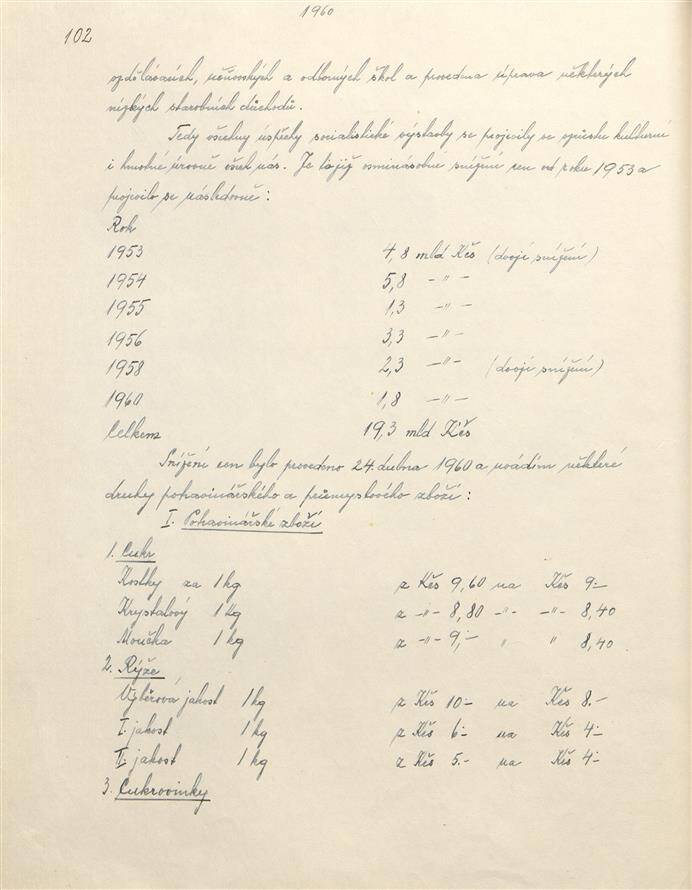 1960
102
vzdělávacích, učňovských a odborných škol a provedena úprava některých
nízkých starobních důchodů.
Tedy všechny úspěchy socialistické výstavby se projevily ve vzrůstu kulturní
i hmotné úrovně všech nás. Je to již osminásobné snížení cen od roku 1953 a
projevilo se následovně:
Rok
1953 4,8 mld Kčs (dvojí snížení)
1954 5,8 -"-
1955 1,3 -"-
1956 3,3 -"-
1958 2,3 -"- (dvojí snížení)
1960 1,8 -"-
Celkem 19,3 mld Kčs
Snížení cen bylo provedeno 24. dubna 1960 a uvádím některé
druhy potravinářského a průmyslového zboží:
I. Potravinářské zboží
1. Cukr
Kostky za 1 kg z Kčs 9,60 na Kčs 9.-
Krystalový 1 kg z -"- 8,80 -"- -"- 8,40
Moučka 1 kg z -"- 9,- " " 8,40
2. Rýže
Výběrová jakost 1 kg z Kčs 10.- na Kčs 8.-
I. jakost 1 kg z Kčs 6.- na Kčs 4.-
II. jakost 1 kg z Kčs 5.- na Kčs 4.-
3. Cukrovinky